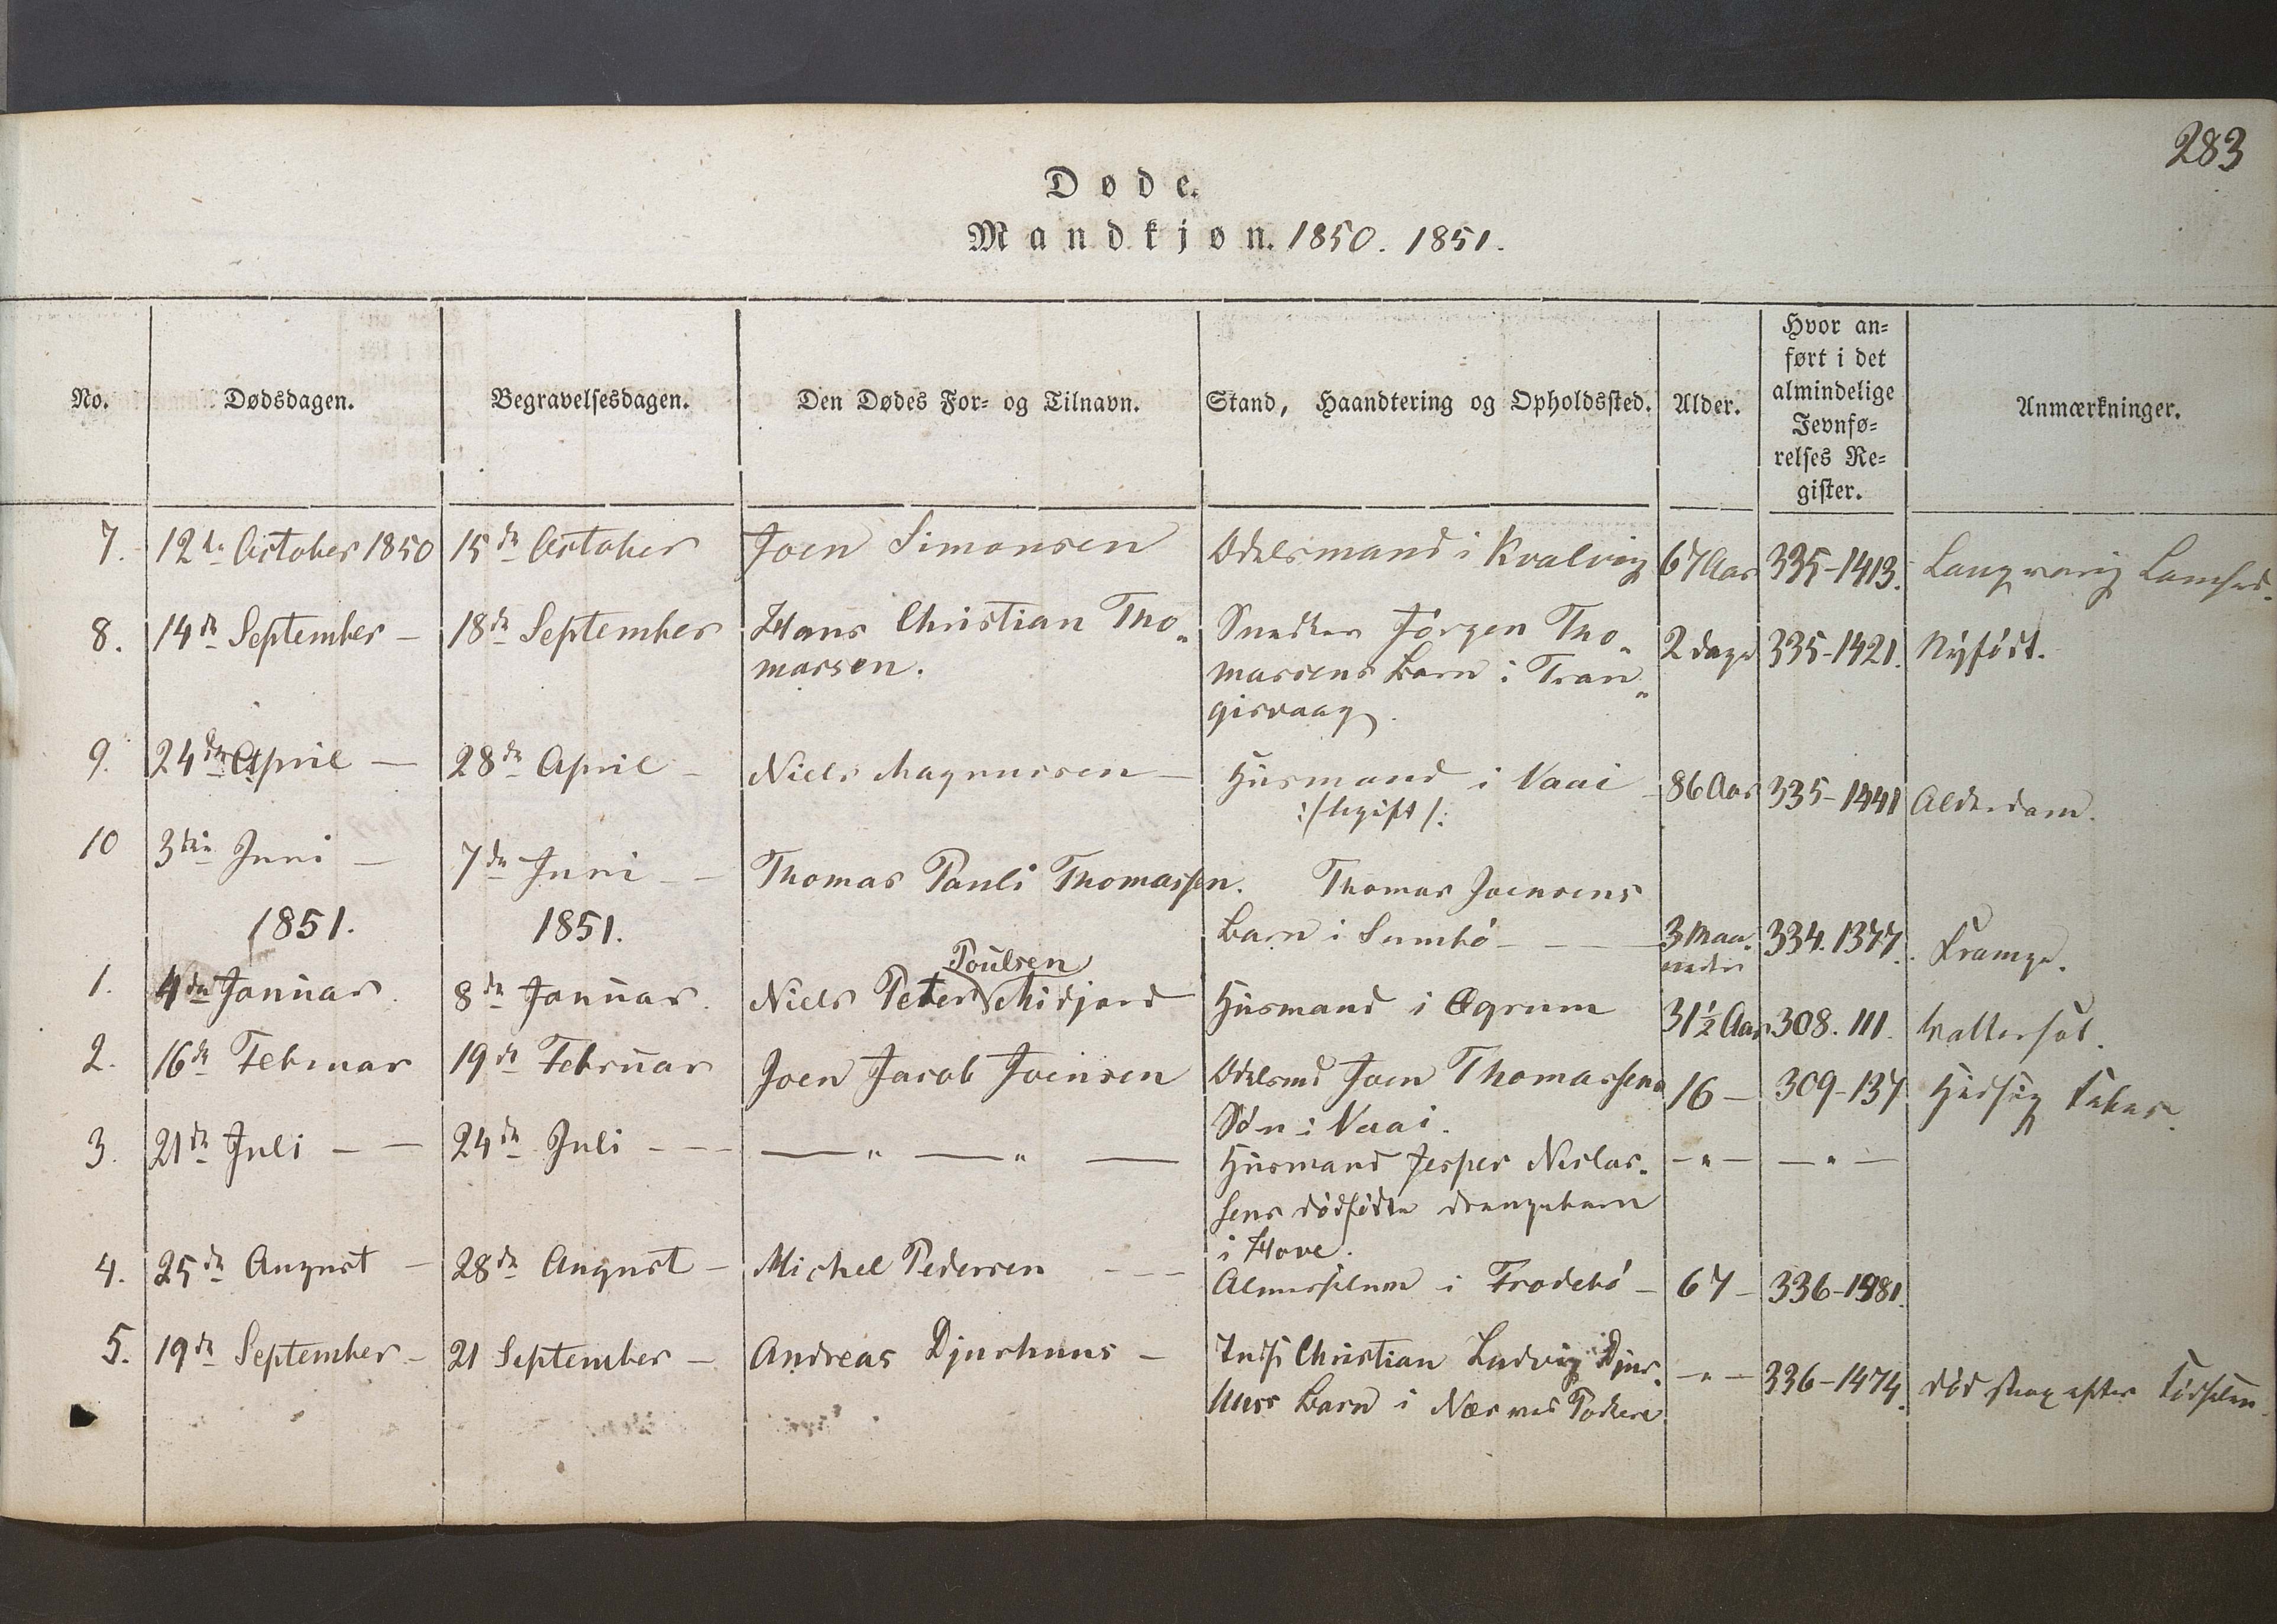 283
Døde.
Mandkjøn. 1850. 1851.
No.
Dødsdagen.
Begravelsesdagen.
Den Dødes For- og Tilnavn.
Stand, Haandtering og Opholdssted.
Alder.
Hvor an-
ført i det
almindelige
Jevnfø-
relses Re-
gister.
Anmærkninger.
7. 12te October 1850 15de October Joen Simonsen Odelsmand i Kvalvig 67 Aar 335-1413. Langvarig
8. 14de September - 18de September Hans Christian Tho„
massen.
Snedker Jörgen Tho„
massens Barn i Tran„
gisvaag.
2 dage 335-1421. Nyfödt.
9. 24de April - 28de April - Niels Magnussen - Huusmand i Vaai
:/Ugift/:
86 Aar 335-1441 Alderdom.
10 3die Juni - 7de Juni - Thomas Pauli Thomassen. Thomas Joensens
Barn i Sumbö - 3 Maa„
neder
334.1377. Krampe.
1851. 1851.
1. 4de Januar. 8de Januar. Niels Peter Poulsen Midjord Huusmand i Øqrum 31½ Aar 308.111. Vattersot.
2. 16de Februar 19de Februar Joen Jacob Joensen Odelsmd Joen Thomassens
Sön i Vaai.
16 - 309-137 Hidsig Feber.
3. 21de Juli - - 24de Juli - - - — „ — „ — Huusmand Jesper Niclas„
sens dödfödte drengebarn
i Hove.
-„- -„-
4. 25de August - 28de August - Michel Pedersen - - - Almisselem i Frodebö - 67 - 336-1481.
5. 19de September - 21 September - Andreas Djurhuus - Christian Ludvig Djur„
huus Barn i Næs ved Porkere
-„- 336-1474. död strax efter Födselen.